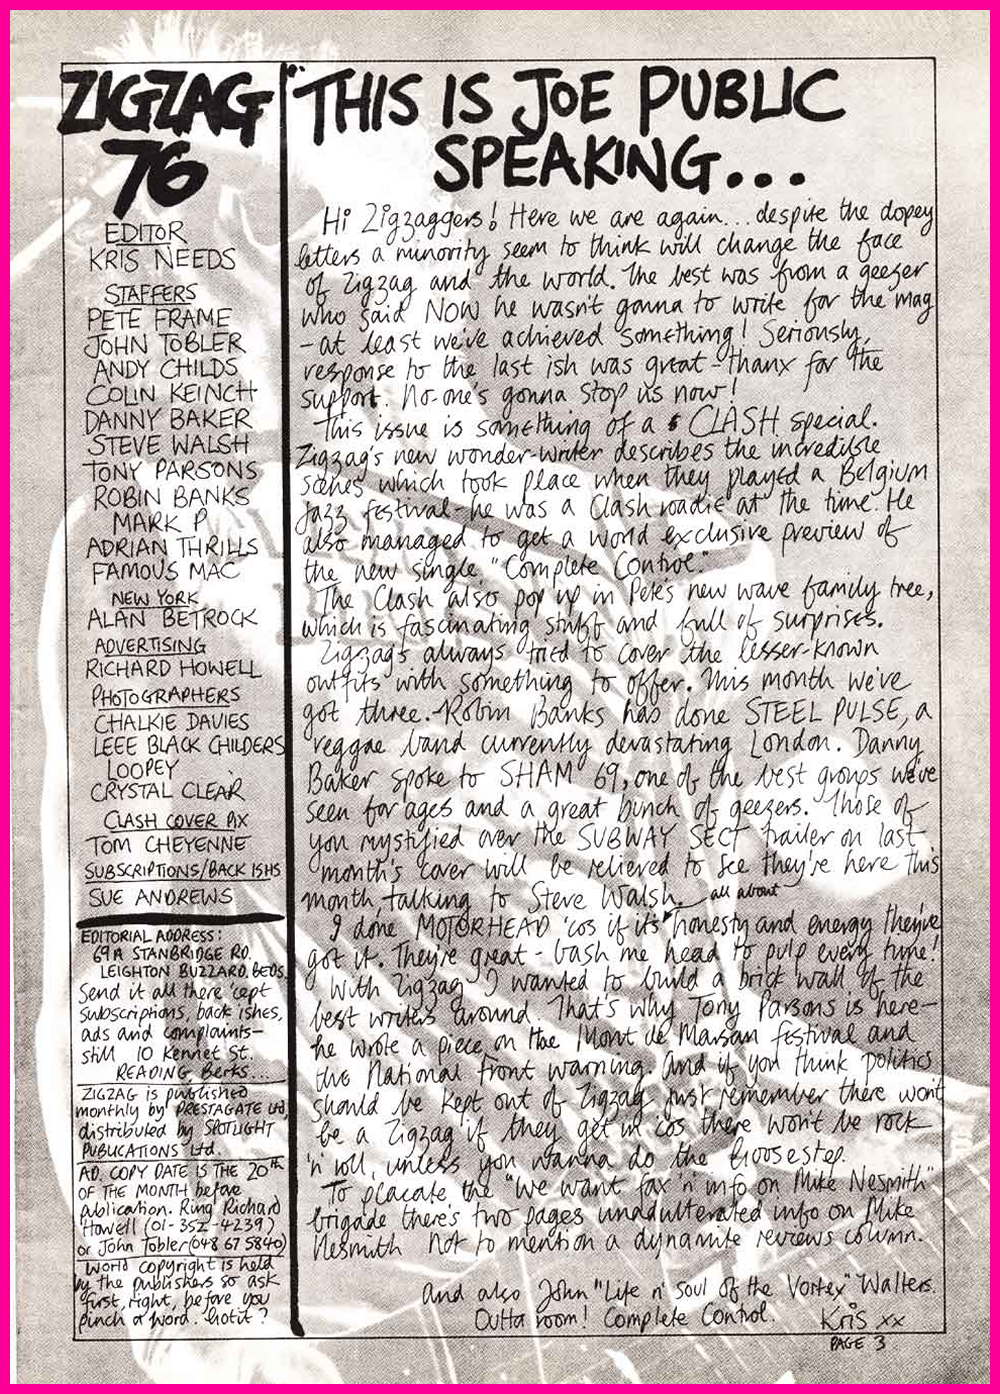 ZIGZAG
76
EDITOR
KRIS NEEDS
STAFFERS
PETE FRAME
JOHN TOBLER
ANDY CHILDS
COLIN KEINCH
DANNY BAKER
STEVE WALSH
TONY PARSONS
ROBIN BANKS
MARK P
ADRIAN THRILLS
FAMOUS MAC
NEW YORK
ALAN BETROCK
ADVERTISING
RICHARD HOWELL
PHOTOGRAPHERS
CHALKIE DAVIES
LEEE BLACK CHILDERS
LOOPEY
CRYSTAL CLEAR
CLASH COVER PIX
TOM CHEYENNE
SUBSCRIPTIONS/BACK ISHS
SUE ANDREWS
EDITORIAL ADDRESS:
69A STANBRIDGE RD.
LEIGHTON BUZZARD, BEDS.
Send it all there 'cept
subscriptions, back ishes,
ads and complaints—
still 10 Kennet St.
READING Berks...
ZIGZAG is published
monthly by PRESTAGATE Ltd,
distributed by SPOTLIGHT
PUBLICATIONS Ltd.
AD. COPY DATE IS THE 20th
OF THE MONTH before
publication. Ring Richard
Howell (01-352-4239)
or John Tobler (048 67 5840)
World copyright is held
by the publishers so ask
first, right, before you
pinch a word. Gotit?
THIS IS JOE PUBLIC
SPEAKING...
Hi Zigzaggers! Here we are again... despite the dopey
letters a minority seem to think will change the face
of Zigzag and the world. The best was from a geezer
who said NOW he wasn't gonna to write for the mag
- at least we've achieved something! Seriously,
response to the last ish was great - thanx for the
support. No-one's gonna stop us now!
This issue is something of a CLASH special.
Zigzag's new wonder-writer describes the incredible
scenes which took place when they played a Belgium
Jazz festival - he was a Clash roadie at the time. He
also managed to get a world exclusive preview of
the new single, "Complete Control."
The Clash also pop up in Pete's new wave family tree,
which is fascinating stuff and full of surprises.
Zigzag's always tried to cover the lesser-known
outfits with something to offer. This month we've
got three. Robin Banks has done STEEL PULSE, a
reggae band currently devastating London. Danny
Baker spoke to SHAM '69, one of the best groups we've
seen for ages and a great bunch of geezers. Those of
you mystified over the SUBWAY SECT trailer on last
month's cover will be relieved to see they're here this
month, talking to Steve Walsh.
I done MOTORHEAD 'cos if it's all about honesty and energy they've
got it. They're great - bash me head to pulp every time!
With Zigzag I wanted to build a brick wall of the
best writers around. That's why Tony Parsons is here—
he wrote a piece on the Mont de Marsan festival and
the National Front warning. And if you think politics
should be kept out of Zigzag just remember there wont
be a Zigzag if they get in cos there won't be rock
'n' roll, unless you wanna do the Goosestep.
To placate the "We want fax 'n' info on Mike Nesmith"
brigade there's two pages unadulterated info on Mike
Nesmith Not to mention a dynamite reviews column.
And also John "Life n' Soul of the Vortex" Walters.
Outta room! Complete Control.
Kris xx
PAGE 3